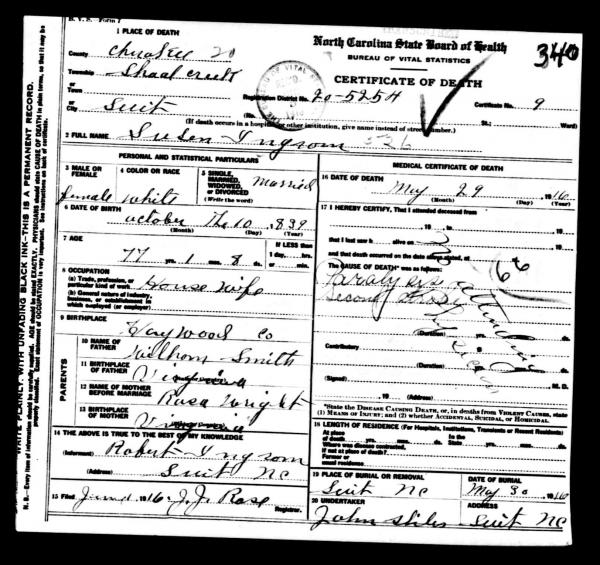 B. V. S. Form 7
1 PLACE OF DEATH
County Cherokee 20
Township Shoal creek
or
Town
or
City Suit
North Carolina State Board of Health
BUREAU OF VITAL STATISTICS
CERTIFICATE OF DEATH
340
Registration District No. 20-5254
Certificate No. 9
(No. St.; Ward)
(If death occurred in a hospital or other institution, give name instead of street and number.)
2 FULL NAME Susen Ingrom 526
PERSONAL AND STATISTICAL PARTICULARS
3 MALE OR FEMALE female
4 COLOR OR RACE white
5 SINGLE, MARRIED, WIDOWED, OR DIVORCED (Write the word) Married
6 DATE OF BIRTH october The 10, 839
(Month) (Day) (Year)
7 AGE 77 yrs. 1 mos. 8 ds.
IF LESS than
1 day, hrs.
or min.
8 OCCUPATION
(a) Trade, profession, or
particular kind of work House wife
(b) General nature of industry,
business, or establishment in
which employed (or employer)
9 BIRTHPLACE Haywood Co
PARENTS
10 NAME OF FATHER Smith
11 BIRTHPLACE OF FATHER
12 NAME OF MOTHER BEFORE MARRIAGE Rosa Wright
13 BIRTHPLACE OF MOTHER
14 THE ABOVE IS TRUE TO THE BEST OF MY KNOWLEDGE
(Informant) Robert Ingrom
(Address) Suit NC
15 Filed June 1 1916 J. J. Rose
Registrar.
MEDICAL CERTIFICATE OF DEATH
16 DATE OF DEATH May 29, 1916
(Month) (Day) (Year)
17 I HEREBY CERTIFY, That I attended deceased from
, 19 to , 19
that I last saw h alive on , 19
and that death occurred on the date stated above, at m.
The CAUSE OF DEATH* was as follows:
Paralysis 66
Second stroke
no attending physician
(Duration) yrs. mos. ds.
Contributory
(Duration) yrs. mos. ds.
(Signed) M. D.
, 19 (Address)
*State the DISEASE CAUSING DEATH, or, in deaths from VIOLENT CAUSES, state
(1) MEANS OF INJURY; and (2) whether ACCIDENTAL, SUICIDAL, or HOMICIDAL.
18 LENGTH OF RESIDENCE (For Hospitals, Institutions, Transients or Recent Residents)
At place of death yrs. mos. ds. In the State yrs. mos. ds.
Where was disease contracted,
if not at place of death?
Former or
usual residence
19 PLACE OF BURIAL OR REMOVAL Suit NC
DATE OF BURIAL May 30, 1916
20 UNDERTAKER John Stiles
ADDRESS Suit NC
WRITE PLAINLY, WITH UNFADING BLACK INK—THIS IS A PERMANENT RECORD.
N. B.—Every item of information should be carefully supplied. AGE should be stated EXACTLY. PHYSICIANS should state CAUSE OF DEATH in plain terms, so that it may be
properly classified. Exact statement of OCCUPATION is very important. See instructions on back of certificate.